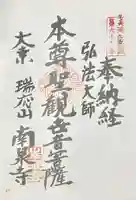 奉納経
弘法大師
本尊聖観世音菩薩
大桒 瑞応山 南泉寺